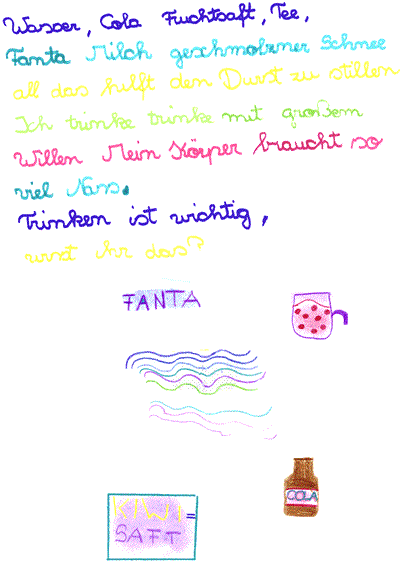 Wasser, Cola Fruchtsaft, Tee,
Fanta Milch geschmolzener Schnee
all das hilft den Durst zu stillen
Ich trinke trinke mit großem
Willen Mein Körper braucht so
viel Nass.
Trinken ist wichtig,
wisst ihr das?
FANTA
COLA
KIWI=
SAFT